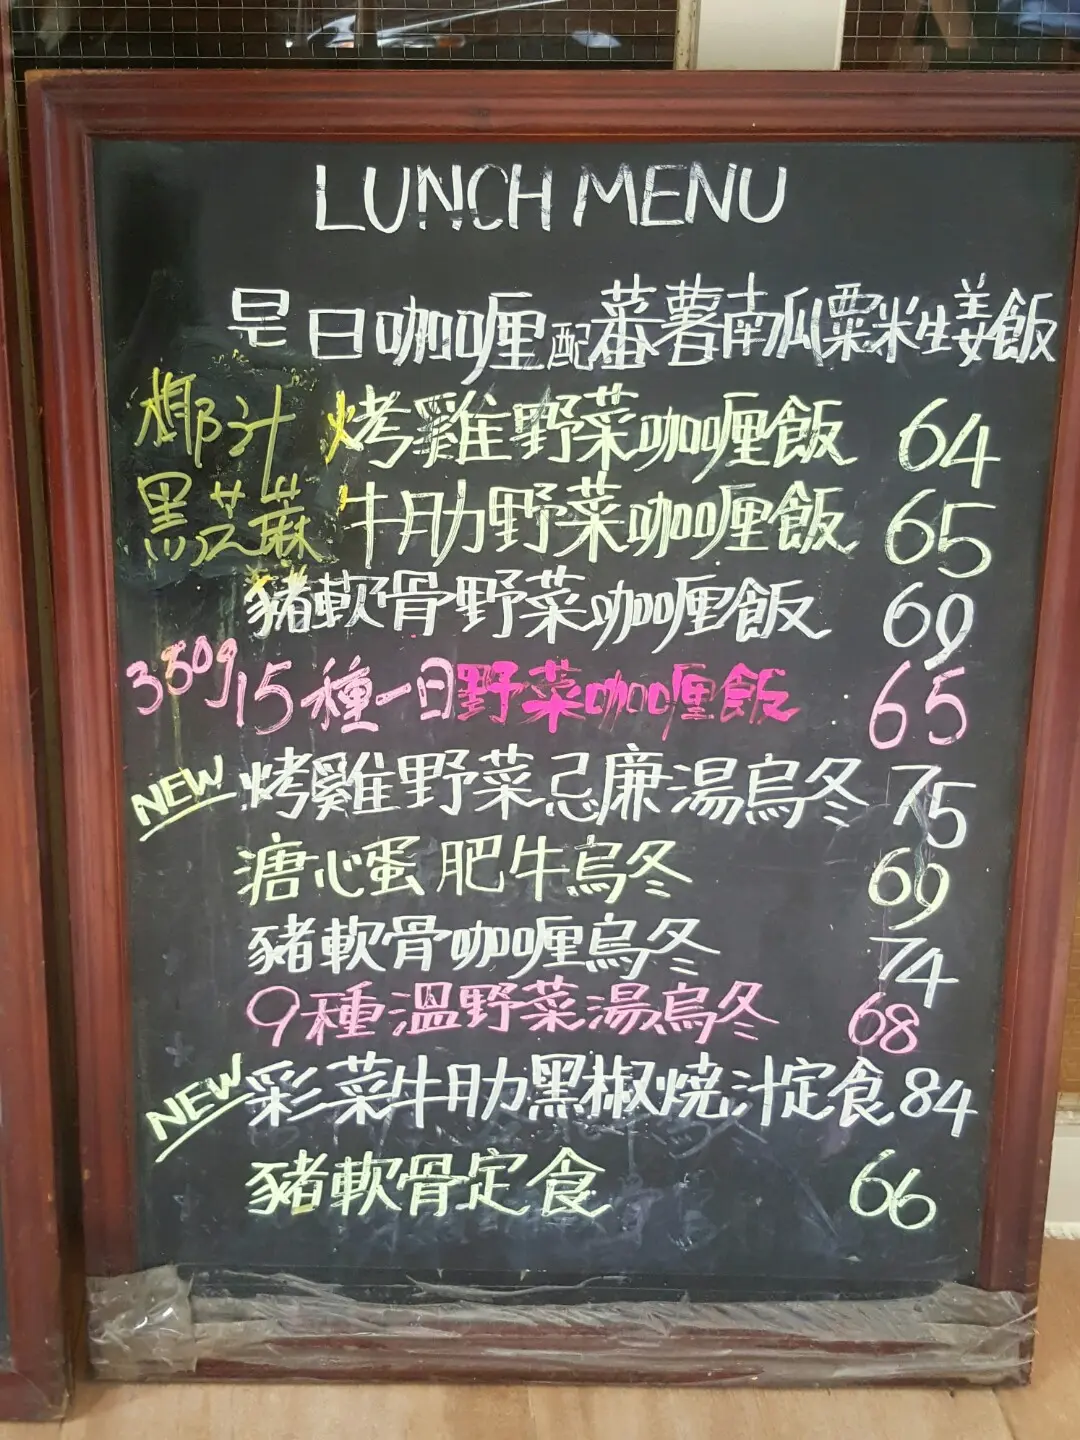 LUNCH MENU
是日咖喱配蕃薯南瓜粟米生姜飯
椰汁 烤雞野菜咖喱飯 64
黑芝蔴 牛肋野菜咖喱飯 65
豬軟骨野菜咖喱飯 69
350g 15種一日野菜咖喱飯 65
NEW 烤雞野菜忌廉湯烏冬 75
溏心蛋肥牛烏冬 69
豬軟骨咖喱烏冬 74
9種溫野菜湯烏冬 68
NEW 彩菜牛肋黑椒燒汁定食 84
豬軟骨定食 66